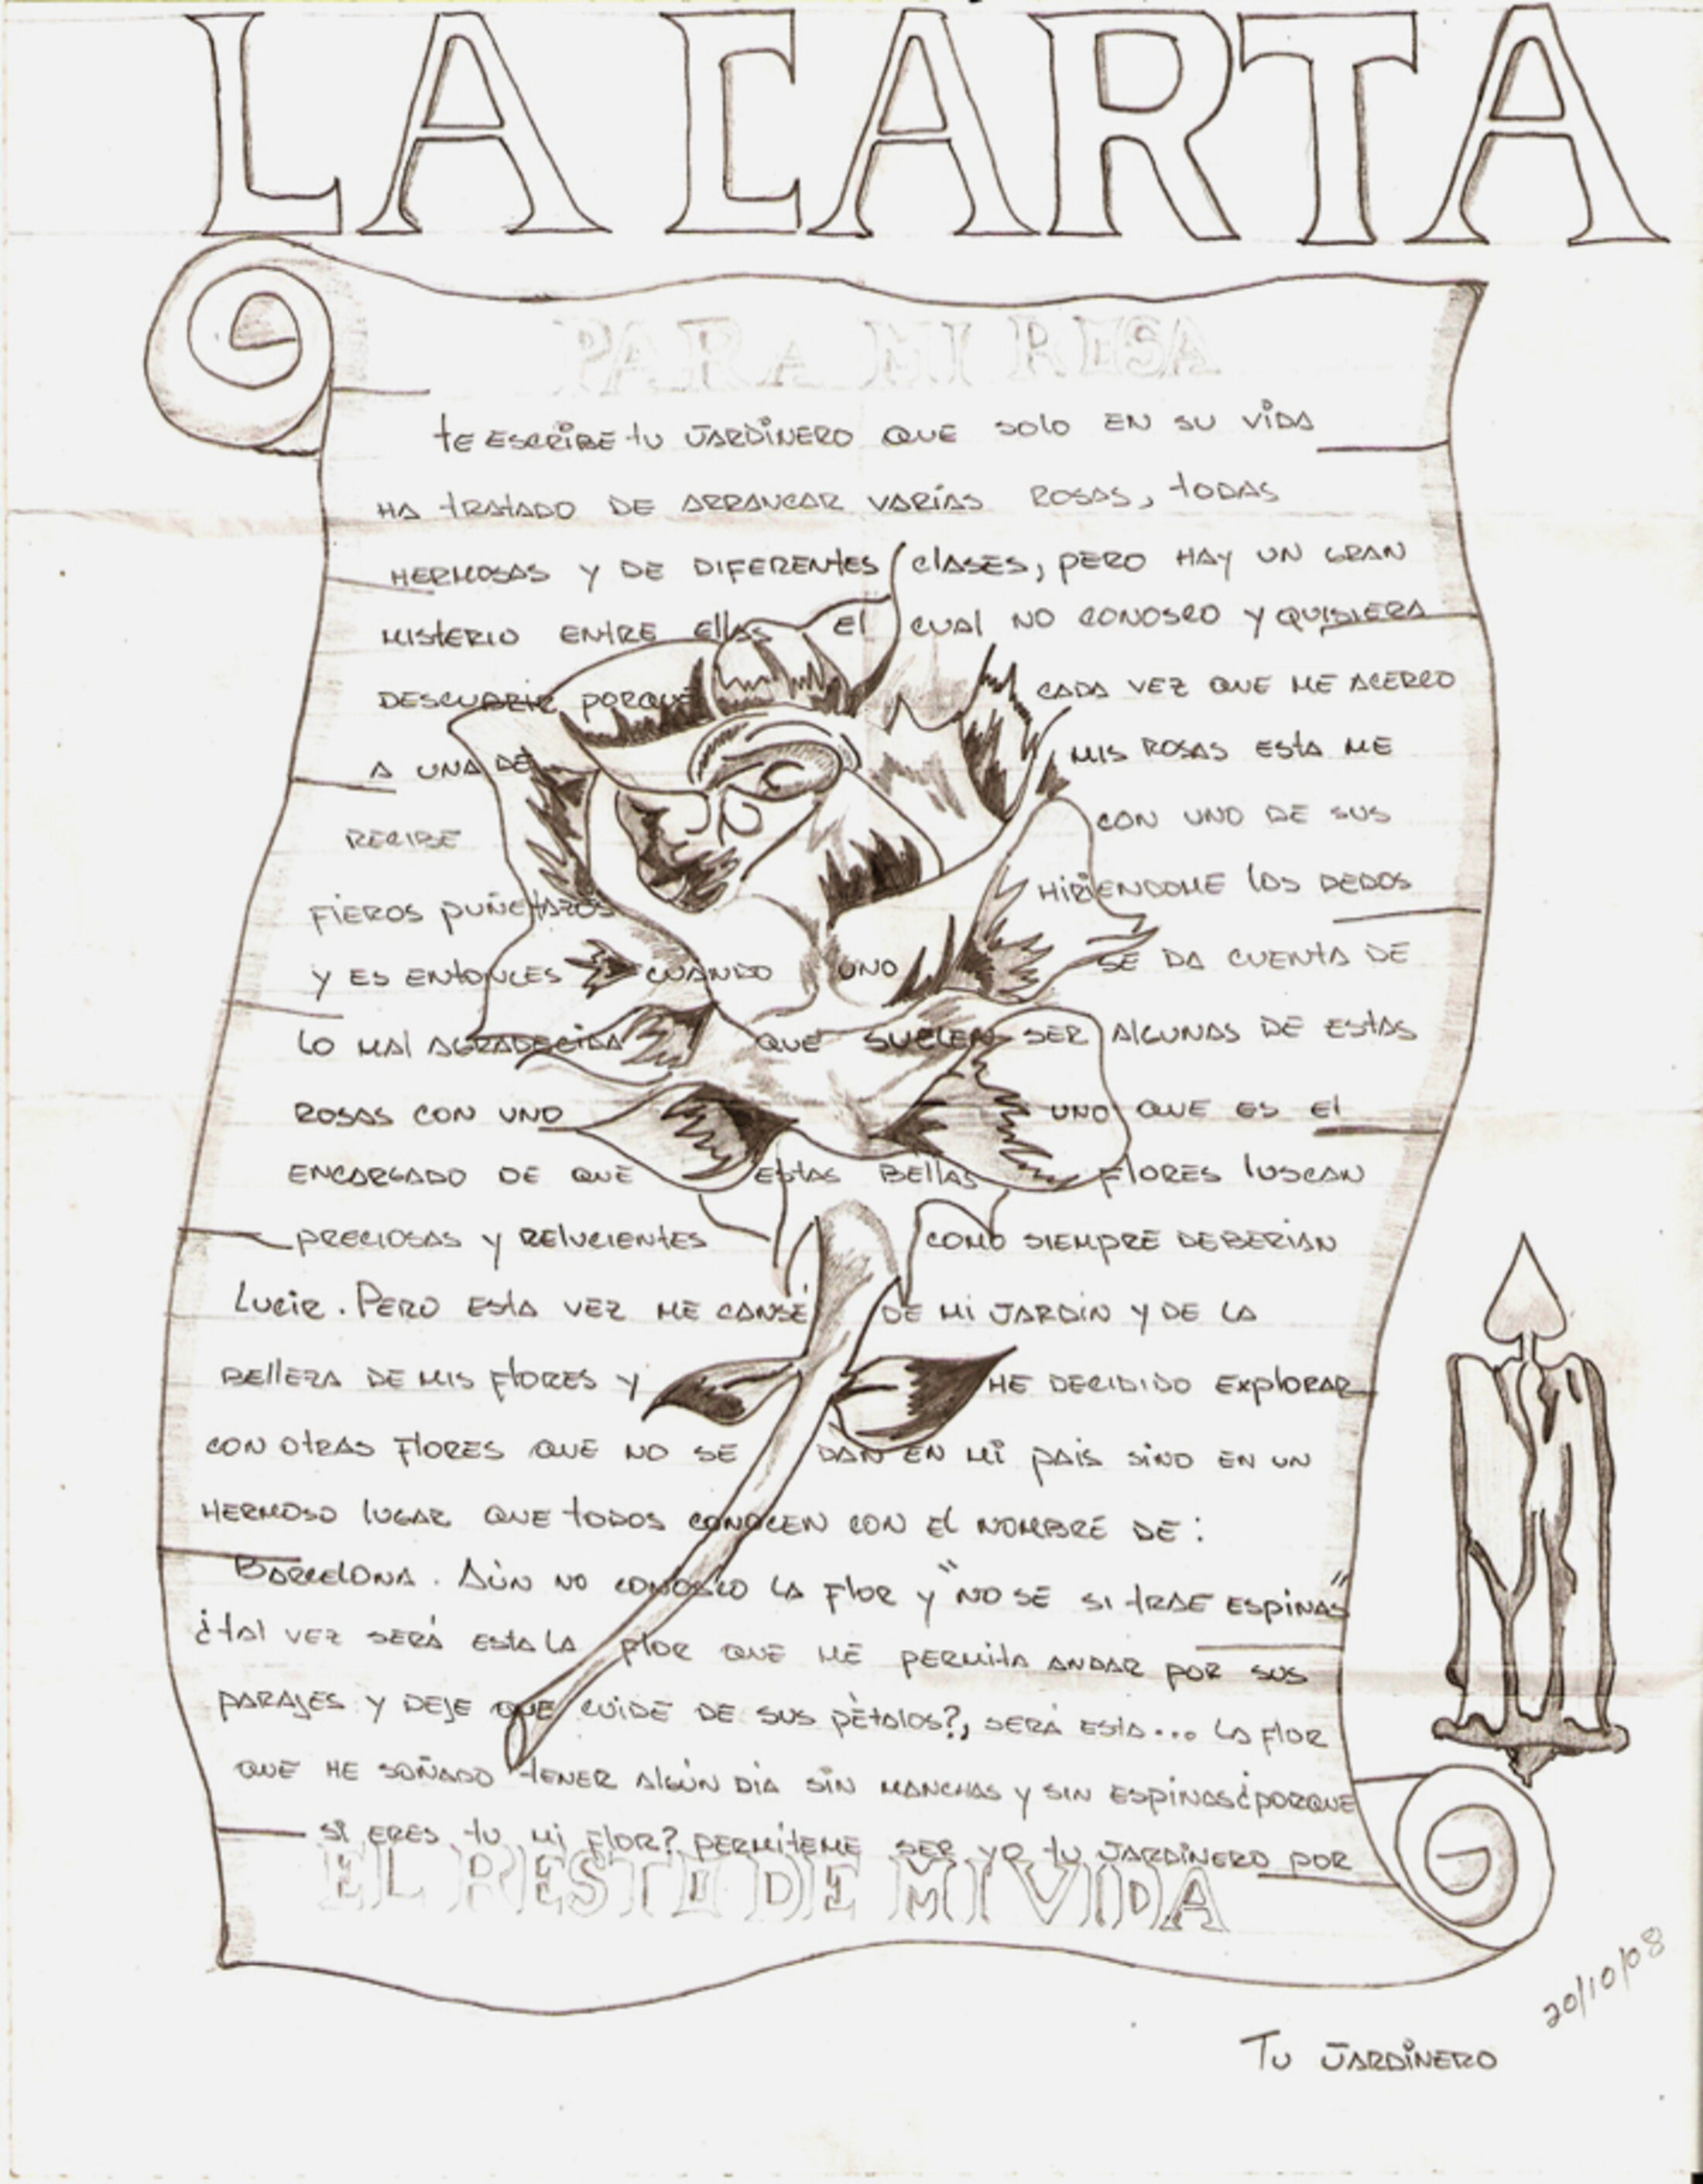 LA CARTA
PARA MI ROSA
te escribe tu jardinero que solo en su vida
ha tratado de arrancar varias rosas, todas
hermosas y de diferentes clases, pero hay un gran
misterio entre ellas el cual no conosco y quisiera
descubrir porque cada vez que me acerco
a una de mis rosas esta me
recibe con uno de sus
fieros puñetazos hiriendome los dedos
y es entonces cuando uno se da cuenta de
lo mal agradecida que suelen ser algunas de estas
rosas con uno uno que es el
encargado de que estas bellas flores luscan
preciosas y relucientes como siempre deberian
lucir. Pero esta vez me cansé de mi jardin y de la
belleza de mis flores y he decidido explorar
con otras flores que no se dan en mi pais sino en un
hermoso lugar que todos conocen con el nombre de:
Barcelona. Aún no conosco la flor y "no se si trae espinas"
¿tal vez será esta la flor que me permita andar por sus
parajes y deje que cuide de sus pétalos?, será esta... la flor
que he soñado tener algún dia sin manchas y sin espinas ¿porque
si eres tu mi flor? permiteme ser yo tu jardinero por
EL RESTO DE MI VIDA
20/10/08
Tu jardinero